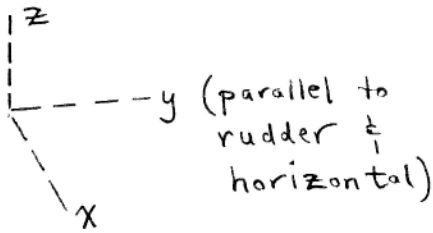 z
y (parallel to
rudder &
horizontal)
x